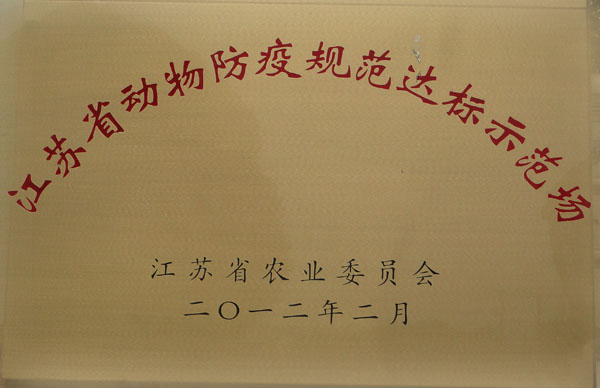 江苏省动物防疫规范达标示范场
江苏省农业委员会
二〇一二年二月